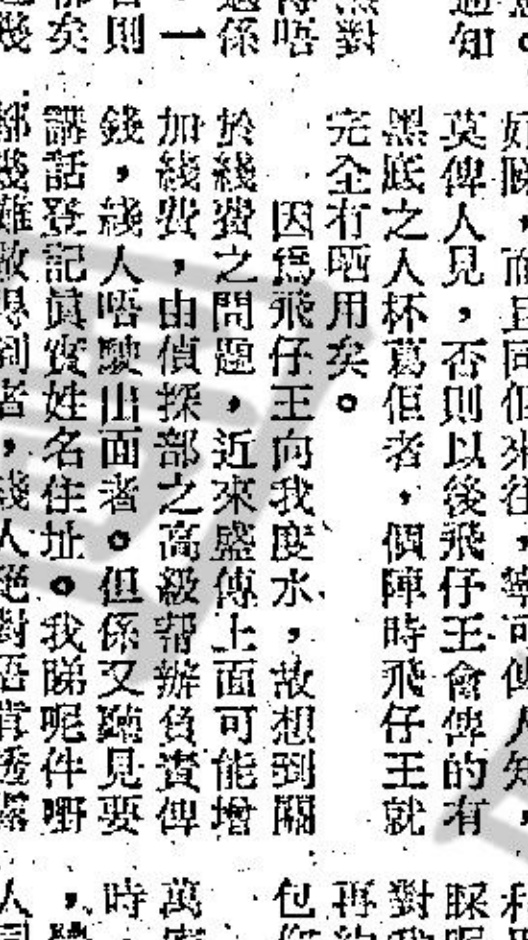 通知
對
唔
係
一
則
矣
幾
而且同佢來往，寧可俾人知，
莫俾人見，否則以後飛仔王會俾的有
黑底之人杯葛佢者，個陣時飛仔王就
完全冇晒用矣。
因爲飛仔王向我度水，故想到關
於綫費之問題，近來盛傳上面可能增
加綫費，由偵探部之高級帮辦負責俾
錢，綫人唔駛出面者。但係又聽見要
講話登記眞實姓名住址。我睇呢件嘢
都幾難做得到者，綫人絕對唔肯透露
睬
對
再
包
萬
時
，
人